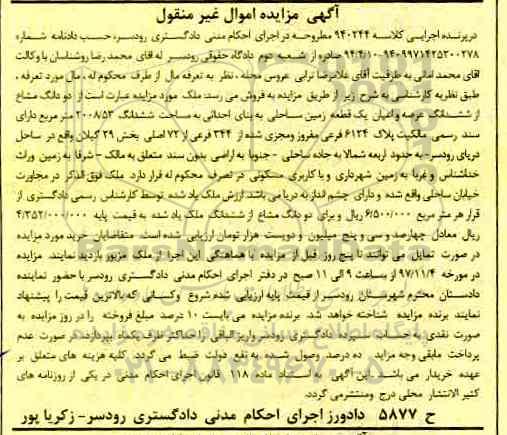 آگهی مزایده اموال غیر منقول
درپرنده اجرایی کلاسه ۹۴۰۲۴۴ مطروحه در اجرای احکام مدنی دادگستری رودسر، حسب دادنامه شماره
۹۴۰۹۹۷۱۴۲۵۳۰۰۲۷۸ - ۹۴/۴/۱۰ صادره از شعبه دوم دادگاه حقوقی رودسر له اقای محمد رضا روشناسان با وکالت
اقای محمد امانی به طرفیت اقای غلامرضا ترابی عروس محله، نظر به تعرفه مال از طرف محکوم له، مال مورد تعرفه،
طبق نظریه کارشناسی به شرح زیر از طریق مزایده به فروش می رسد: ملک مورد مزایده عبارت است از دو دانگ مشاع
از ششدانگ عرصه و اعیان یک قطعه زمین ساحلی به بنای احداثی به مساحت ششدانگ ۲۰۰۸/۵۳ متر مربع دارای
سند رسمی مالکیت پلاک ۶۱۲۴ فرعی مفروز ومجزی شده از ۳۴۴ فرعی از ۷۲ اصلی بخش ۲۹ گیلان واقع در ساحل
دریای رودسر- به حدود اربعه شمالا به جاده ساحلی - جنوبا به اراضی بدون سند متعلق به مالک - شرقا به زمین وراث
خداشناس و غربا به زمین شهرداری و با کاربری مسکونی در تصرف محکوم له قرار دارد. ملک فوق الذکر در مجاورت
خیابان ساحلی واقع شده و دارای چشم انداز به دریا می باشد. ارزش ملک یاد شده توسط کارشناس رسمی دادگستری از
قرار هر متر مربع ۶/۵۰۰/۰۰۰ ریال و برای دو دانگ مشاع از ششدانگ ملک یاد شده به قیمت پایه ۴/۳۵۲/۰۰۰/۰۰۰
ریال معادل چهارصد و سی و پنج میلیون و دویست هزار تومان ارزیابی شده است. متقاضیان خرید مورد مزایده
در صورت تمایل می توانند تا پنج روز قبل از مزایده با هماهنگی این اجرا از ملک مزبور بازدید نمایند. مزایده
در مورخه ۹۷/۱۱/۴ از ساعت ۹ الی ۱۱ صبح در دفتر اجرای احکام مدنی دادگستری رودسر با حضور نماینده
دادستان محترم شهرستان رودسر از قیمت پایه ارزیابی شده شروع وکسانی که بالاترین قیمت را پیشنهاد
نمایند برنده مزایده شناخته خواهد شد. برنده مزایده می بایست ۱۰ درصد مبلغ فروخته را در روز مزایده به
صورت نقدی به حساب سپرده دادگستری رودسر واریز والباقی را حداکثر ظرف یکماه بپردازد. در صورت عدم
پرداخت مابقی وجه مزایده ده درصد وصول شده به نفع دولت ضبط می گردد. کلیه هزینه های متعلق بر
عهده خریدار می باشد. این آگهی به استناد ماده ۱۱۸ قانون اجرای احکام مدنی در یکی از روزنامه های
کثیر الانتشار محلی درج ومنتشرمی گردد.
ح ۵۸۷۷ دادورز اجرای احکام مدنی دادگستری رودسر- زکریا پور